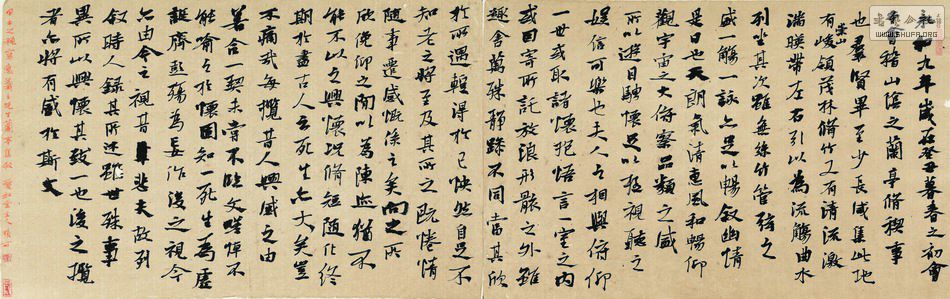 永和九年歲在癸丑暮春之初會
于會稽山陰之蘭亭脩稧事
也群賢畢至少長咸集此地
有崇山峻領茂林脩竹又有清流激
湍暎帶左右引以為流觴曲水
列坐其次雖無絲竹管弦之
盛一觴一詠亦足以暢敘幽情
是日也天朗氣清惠風和暢仰
觀宇宙之大俯察品類之盛
所以遊目騁懷足以極視聽之
娛信可樂也夫人之相與俯仰
一世或取諸懷抱悟言一室之內
或因寄所託放浪形骸之外雖
趣舍萬殊靜躁不同當其欣
於所遇輕得於己快然自足不
知老之將至及其所之既惓情
隨事遷感慨係之矣向之所
欣俛仰之間以為陳迹猶不
能不以之興懷況脩短隨化終
期於盡古人云死生亦大矣豈
不痛哉每攬昔人興感之由
若合一契未嘗不臨文嗟悼不
能喻之於懷固知一死生為虛
誕齊彭殤為妄作後之視今
亦由今之視昔悲夫故列
敘時人錄其所述雖世殊事
異所以興懷其致一也後之攬
者亦將有感於斯文
WWW.SHUFA.ORG